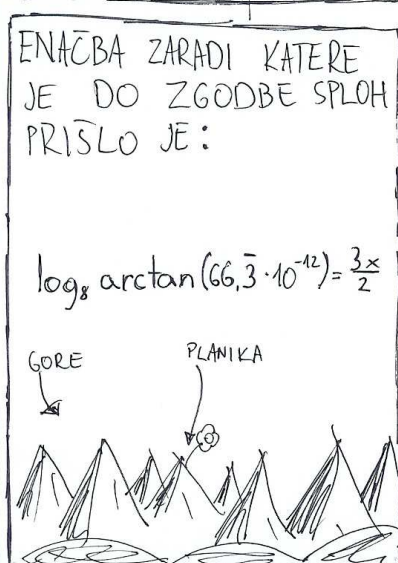 ENAČBA ZARADI KATERE
JE DO ZGODBE SPLOH
PRIŠLO JE:
log₈ arctan(66,3̄·10⁻¹²)=3x/2
GORE
PLANIKA